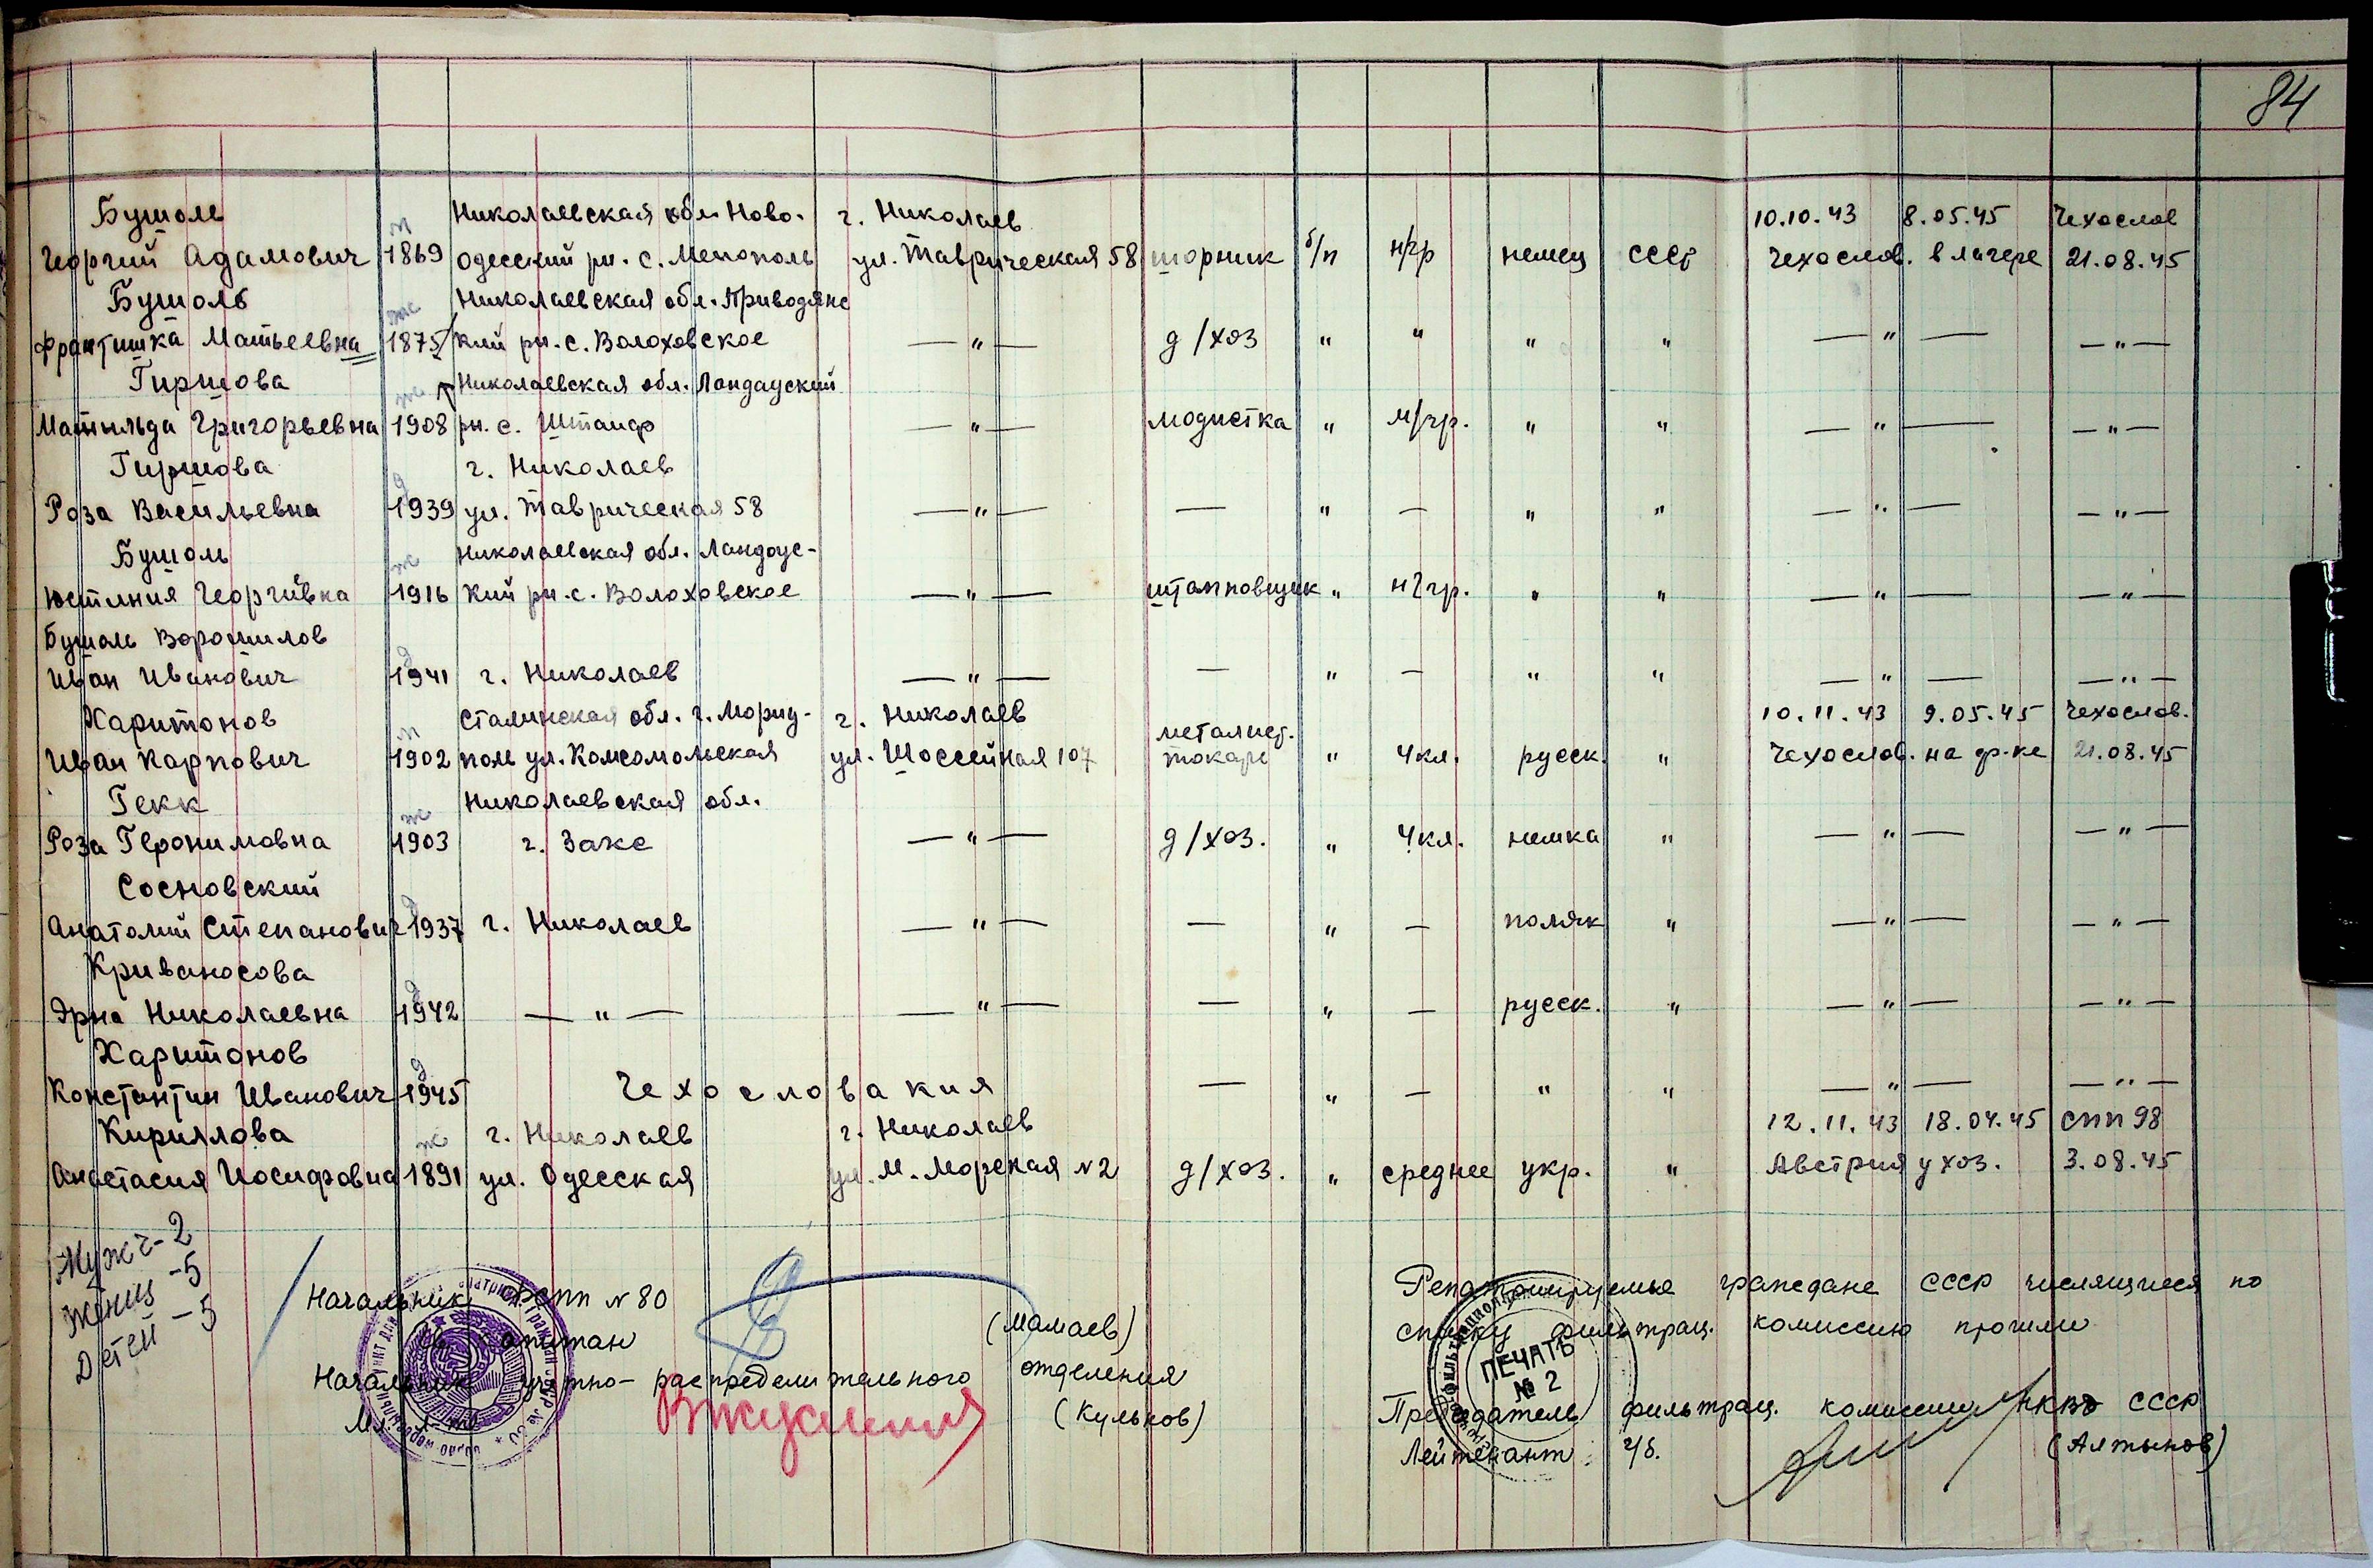 84
Бушоль Николаевская обл. Ново- г. Николаев 10.10.43 8.05.45 Чехослов
Георгий Адамович м 1869 одесский рн. с. Менополь ул. Таврическая 58 шорник б/п н/гр немец СССР Чехослов. в лагере 21.08.45
Бушоль Николаевская обл. Приводянс
Франтишка Матьеевна ж 1875 кий рн. с. Волоховское — " — д/хоз " " " " — " — — " —
Гиршова Николаевская обл. Ландауский
Матильда Григорьевна ж 1908 рн. с. Штаиф — " — модистка " м/гр. " " — " — — " —
Гиршова г. Николаев
Роза Васильевна д 1939 ул. Таврическая 58 — " — — " — " " — " — — " —
Бушоль Николаевская обл. Ландоус-
Юстиния Георгивна ж 1916 кий рн. с. Волоховское — " — штамповщик " н/гр. " " — " — — " —
Бушоль Ворошилов
Иван Иванович д 1941 г. Николаев — " — — " — " " — " — — " —
Харитонов Сталинская обл. г. Мориу- г. Николаев металист. 10.11.43 9.05.45 Чехослов.
Иван Карпович м 1902 поль ул. Комсомольская ул. Шоссейная 107 токарь " 4кл. русск. " Чехослов. на ф-ке 21.08.45
Гекк Николаевская обл.
Роза Геронимовна ж 1903 г. Заке — " — д/хоз. " 4кл. немка " — " — — " —
Сосновский
Анатолий Степанович д 1937 г. Николаев — " — — " — поляк " — " — — " —
Криваносова
Эрна Николаевна д 1942 — " — — " — — " — русск. " — " — — " —
Харитонов
Константин Иванович д 1945 Чехословакия — " — " " — " — — " —
Кириллова г. Николаев г. Николаев 12.11.43 18.04.45 спп 98
Анастасия Иосифовна ж 1891 ул. Одесская ул. М. Морская №2 д/хоз. " среднее укр. " Австрия у хоз. 3.08.45
Мужч - 2
Женщ - 5
Детей - 5
Начальник спп №80
капитан (Мамаев)
Начальник учетно-распределительного отделения
Мл. л-т (Кульков)
Репатриируемые граждане СССР числящиеся по
списку фильтрац. комиссию прошли
ПЕЧАТЬ
№ 2
Председатель фильтрац. комиссии НКВД СССР
Лейтенант г/б. (Алтынов)